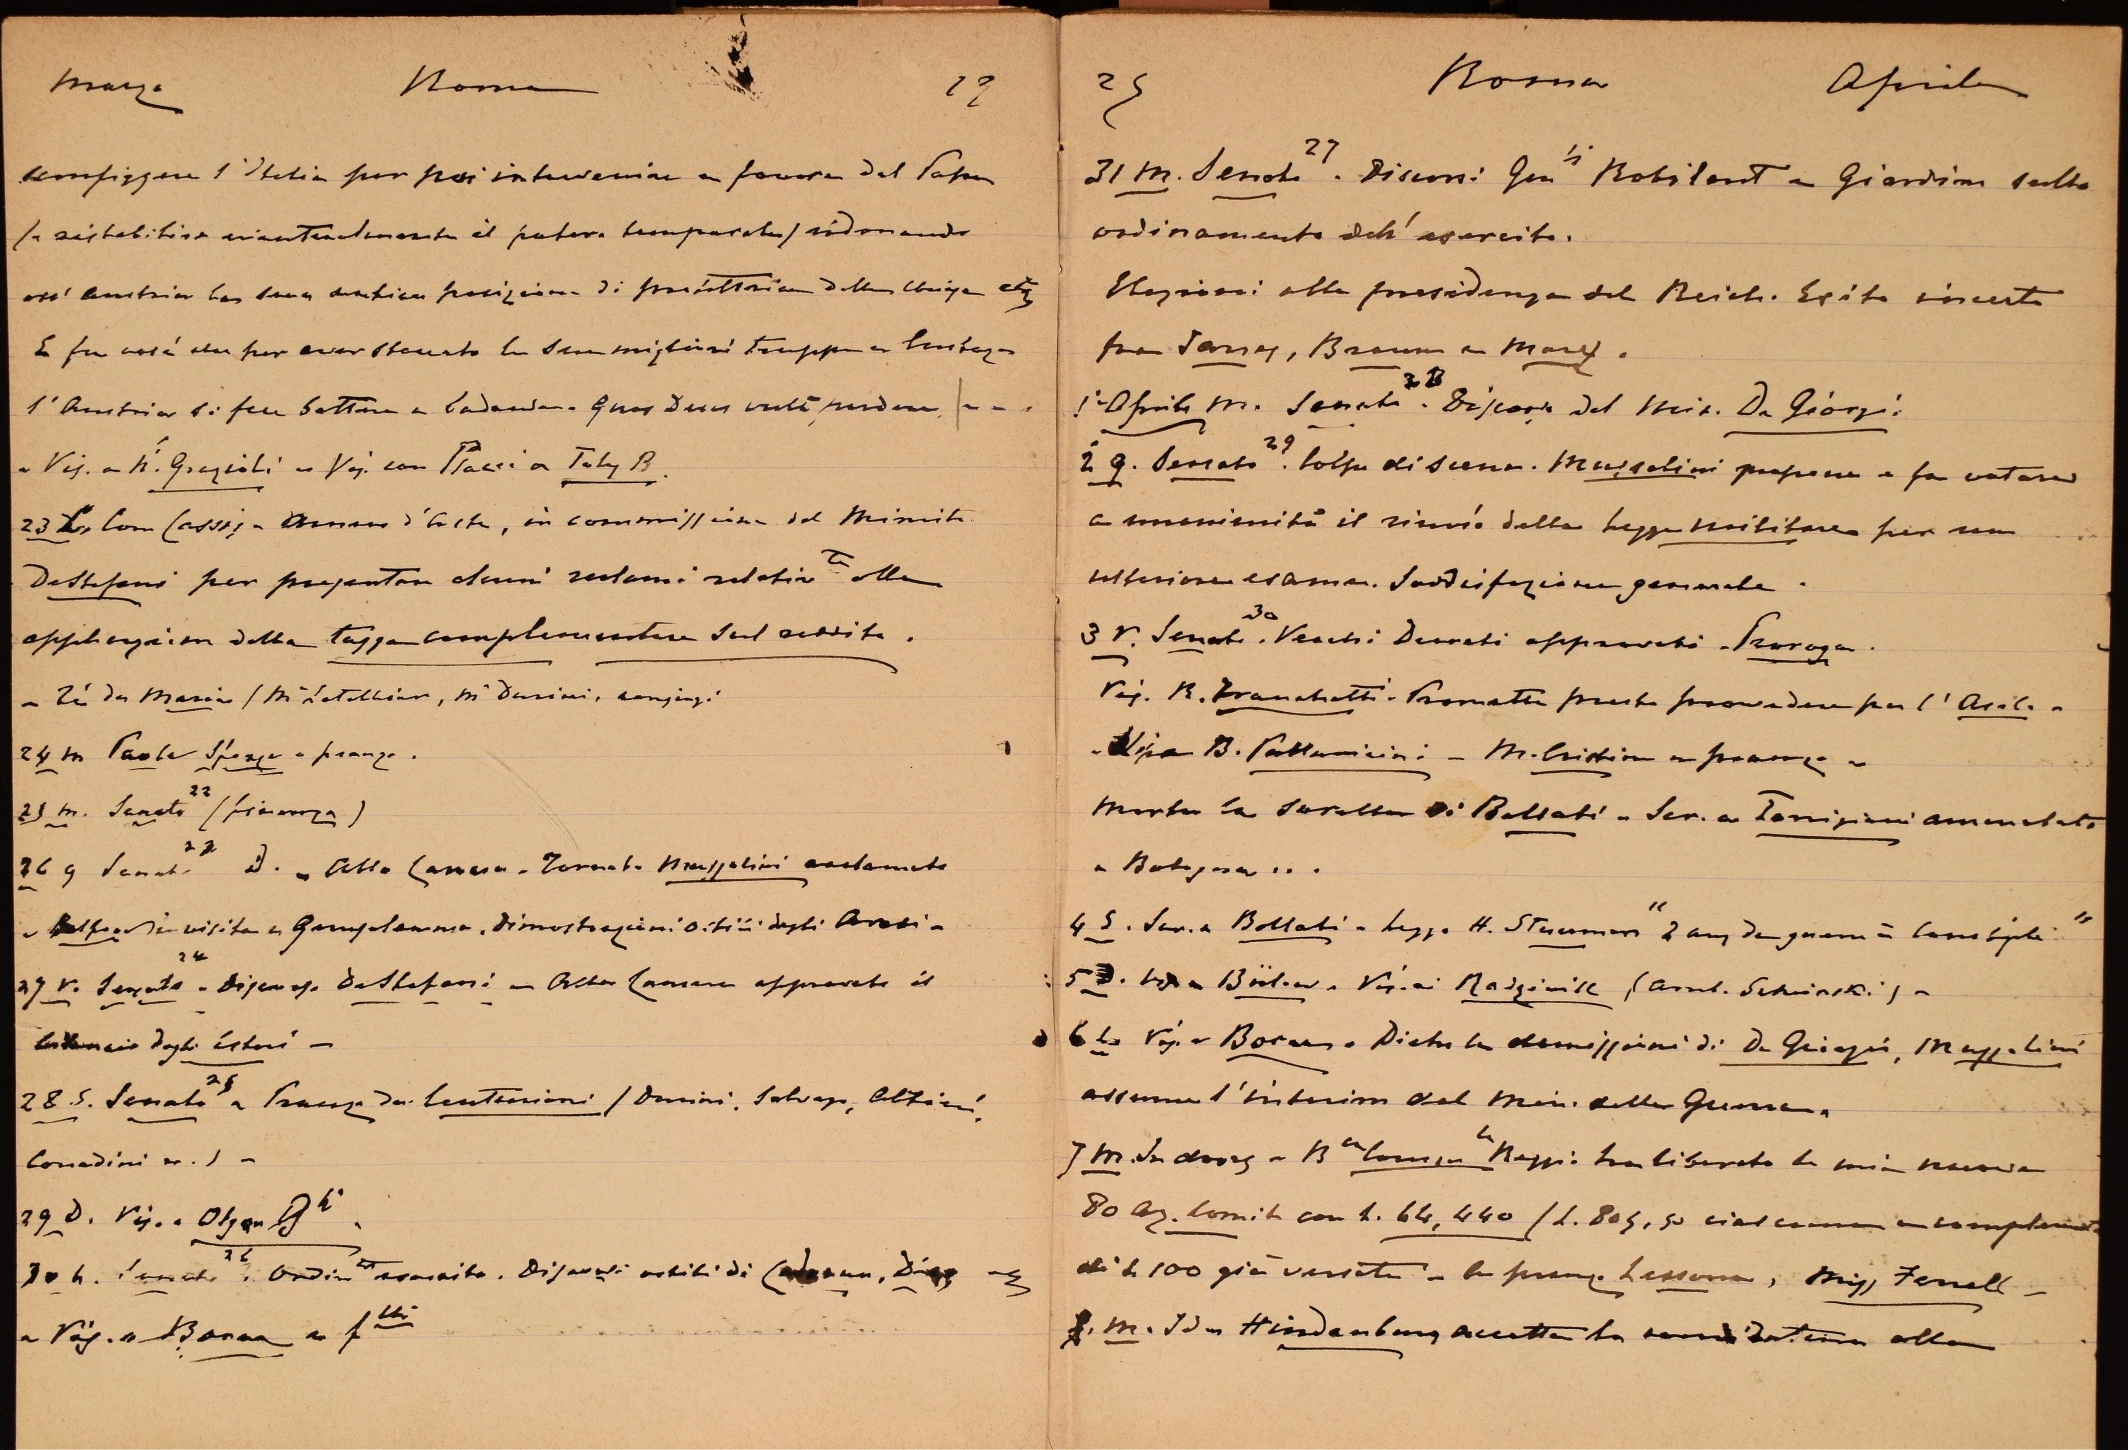 Marzo Roma
sconfiggere l'Italia per poi intervenire a favore del Papa
(e ristabilire eventualmente il potere temporale) ridonando
all'Austria la sua antica posizione di protettrice della Chiesa etc
E fu così che per aver staccato le sue migliori truppe a Custoza
l'Austria si fece battere a Sadowa. Quos Deus vult perdere, - - .
- Vis. a N. Grazioli - Vis. con Pacci a Taly B.
23 L. Con Cassis e Amano d'Aste, in commissione dal Ministro
DeStefani per presentare alcuni reclami relativi alla
applicazione della tassa complementare sul reddito.
- Tè da Maria (M. Letellier, M. Durini, coniugi
24 M Paolo Spezzo a pranzo.
25 M. Senato 22 (finanza)
26 G Senato 23 D. - Alla Camera. Tornato Mussolini acclamato
- Balfour in visita a Gerusalemme. Dimostrazioni ostili degli Arabi -
27 V. Senato 24 - Discorso DeStefani - Alla Camera approvato il
bilancio degli Esteri -
28 S. Senato 25 - Pranzo da Centurioni (Durini, Salvago, Altieri,
Corradini ec.) -
29 D. Vis. a Olga
30 L. Senato 26. Ordin. esercito. Discorsi ostili di Cadorna, Diaz
- Vis. a Borea e f.lli
25 Roma Aprile
31 M. Senato 27. Discorsi Gen.li Robilant e Giardino sullo
ordinamento dell'esercito.
Elezioni alla presidenza del Reich. Esito incerto
fra Jarres, Braun e Marx.
1° Aprile M. Senato 28. Discorso del Min. Di Giorgi.
2 G. Senato 29. Colpo di scena. Mussolini propone e fa votare
a unanimità il rinvio della legge militare per un
ulteriore esame. Soddisfazione generale.
3 V. Senato 30. Vecchi Decreti approvati. Proroga.
Vis. R. Franchetti. Promette presto provvedere per l'Asilo -
- B. Pallavicini - M. Cristina a pranzo -
Morta la sorella di Bollati - Ser. a Torrigiani ammalato
a Bologna . . .
4 S. Ser. a Bollati - Leggo H. Stuermer "2 ans de guerre à Constantinople"
5 D. Vis. a Bülow. Vis. ai Radziwill (Amb. Skirski) -
6 L. Vis. a Borea. Dietro le demissioni di Di Giorgio, Mussolini
assume l'interim del Min. della Guerra.
7 M. B.ca Comm.le Reggio ha liberato le mie nuove
80 Az. Comit con L. 64,440 (L. 805,50 ciascuna a complemento
di L 100 già versate - a pranzo Lessona, Miss Ferrell -
8. M. Ida Hindenburg accetta la candidatura alla